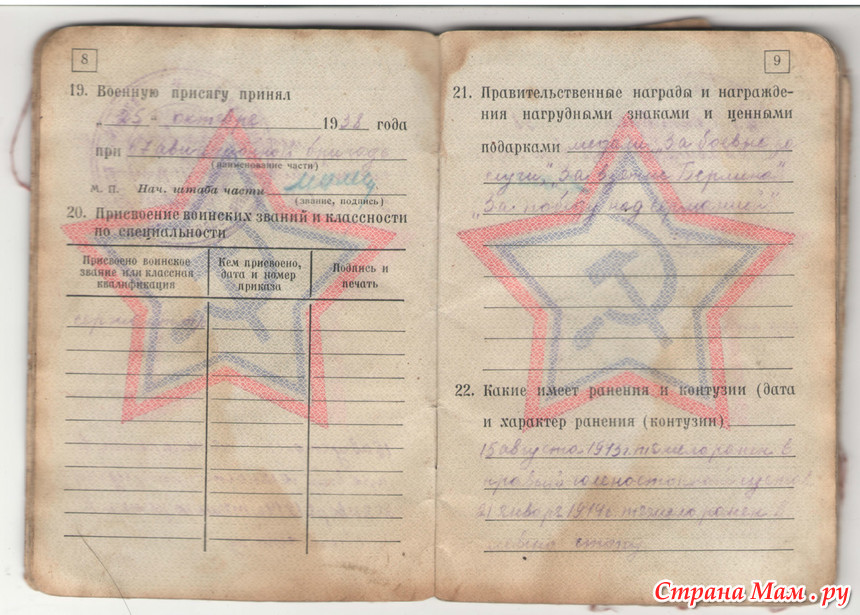 8
19. Военную присягу принял
„25“ октября 1938 года
при авиационной бригаде
(наименование части)
М. П. Нач. штаба части
(звание, подпись)
20. Присвоение воинских званий и классности
по специальности
Присвоено воинское
звание или классная
квалификация
Кем присвоено,
дата и номер
приказа
Подпись и
печать
9
21. Правительственные награды и награжде-
ния нагрудными знаками и ценными
подарками медали „За боевые за
слуги", „За взятие Берлина"
„За победу над Германией"
22. Какие имеет ранения и контузии (дата
и характер ранения (контузии)
15 августа 1943 г. тяжело ранен в
правый голеностопный сустав
21 января 1944 тяжело ранен в
левую стопу
Страна Мам.ру